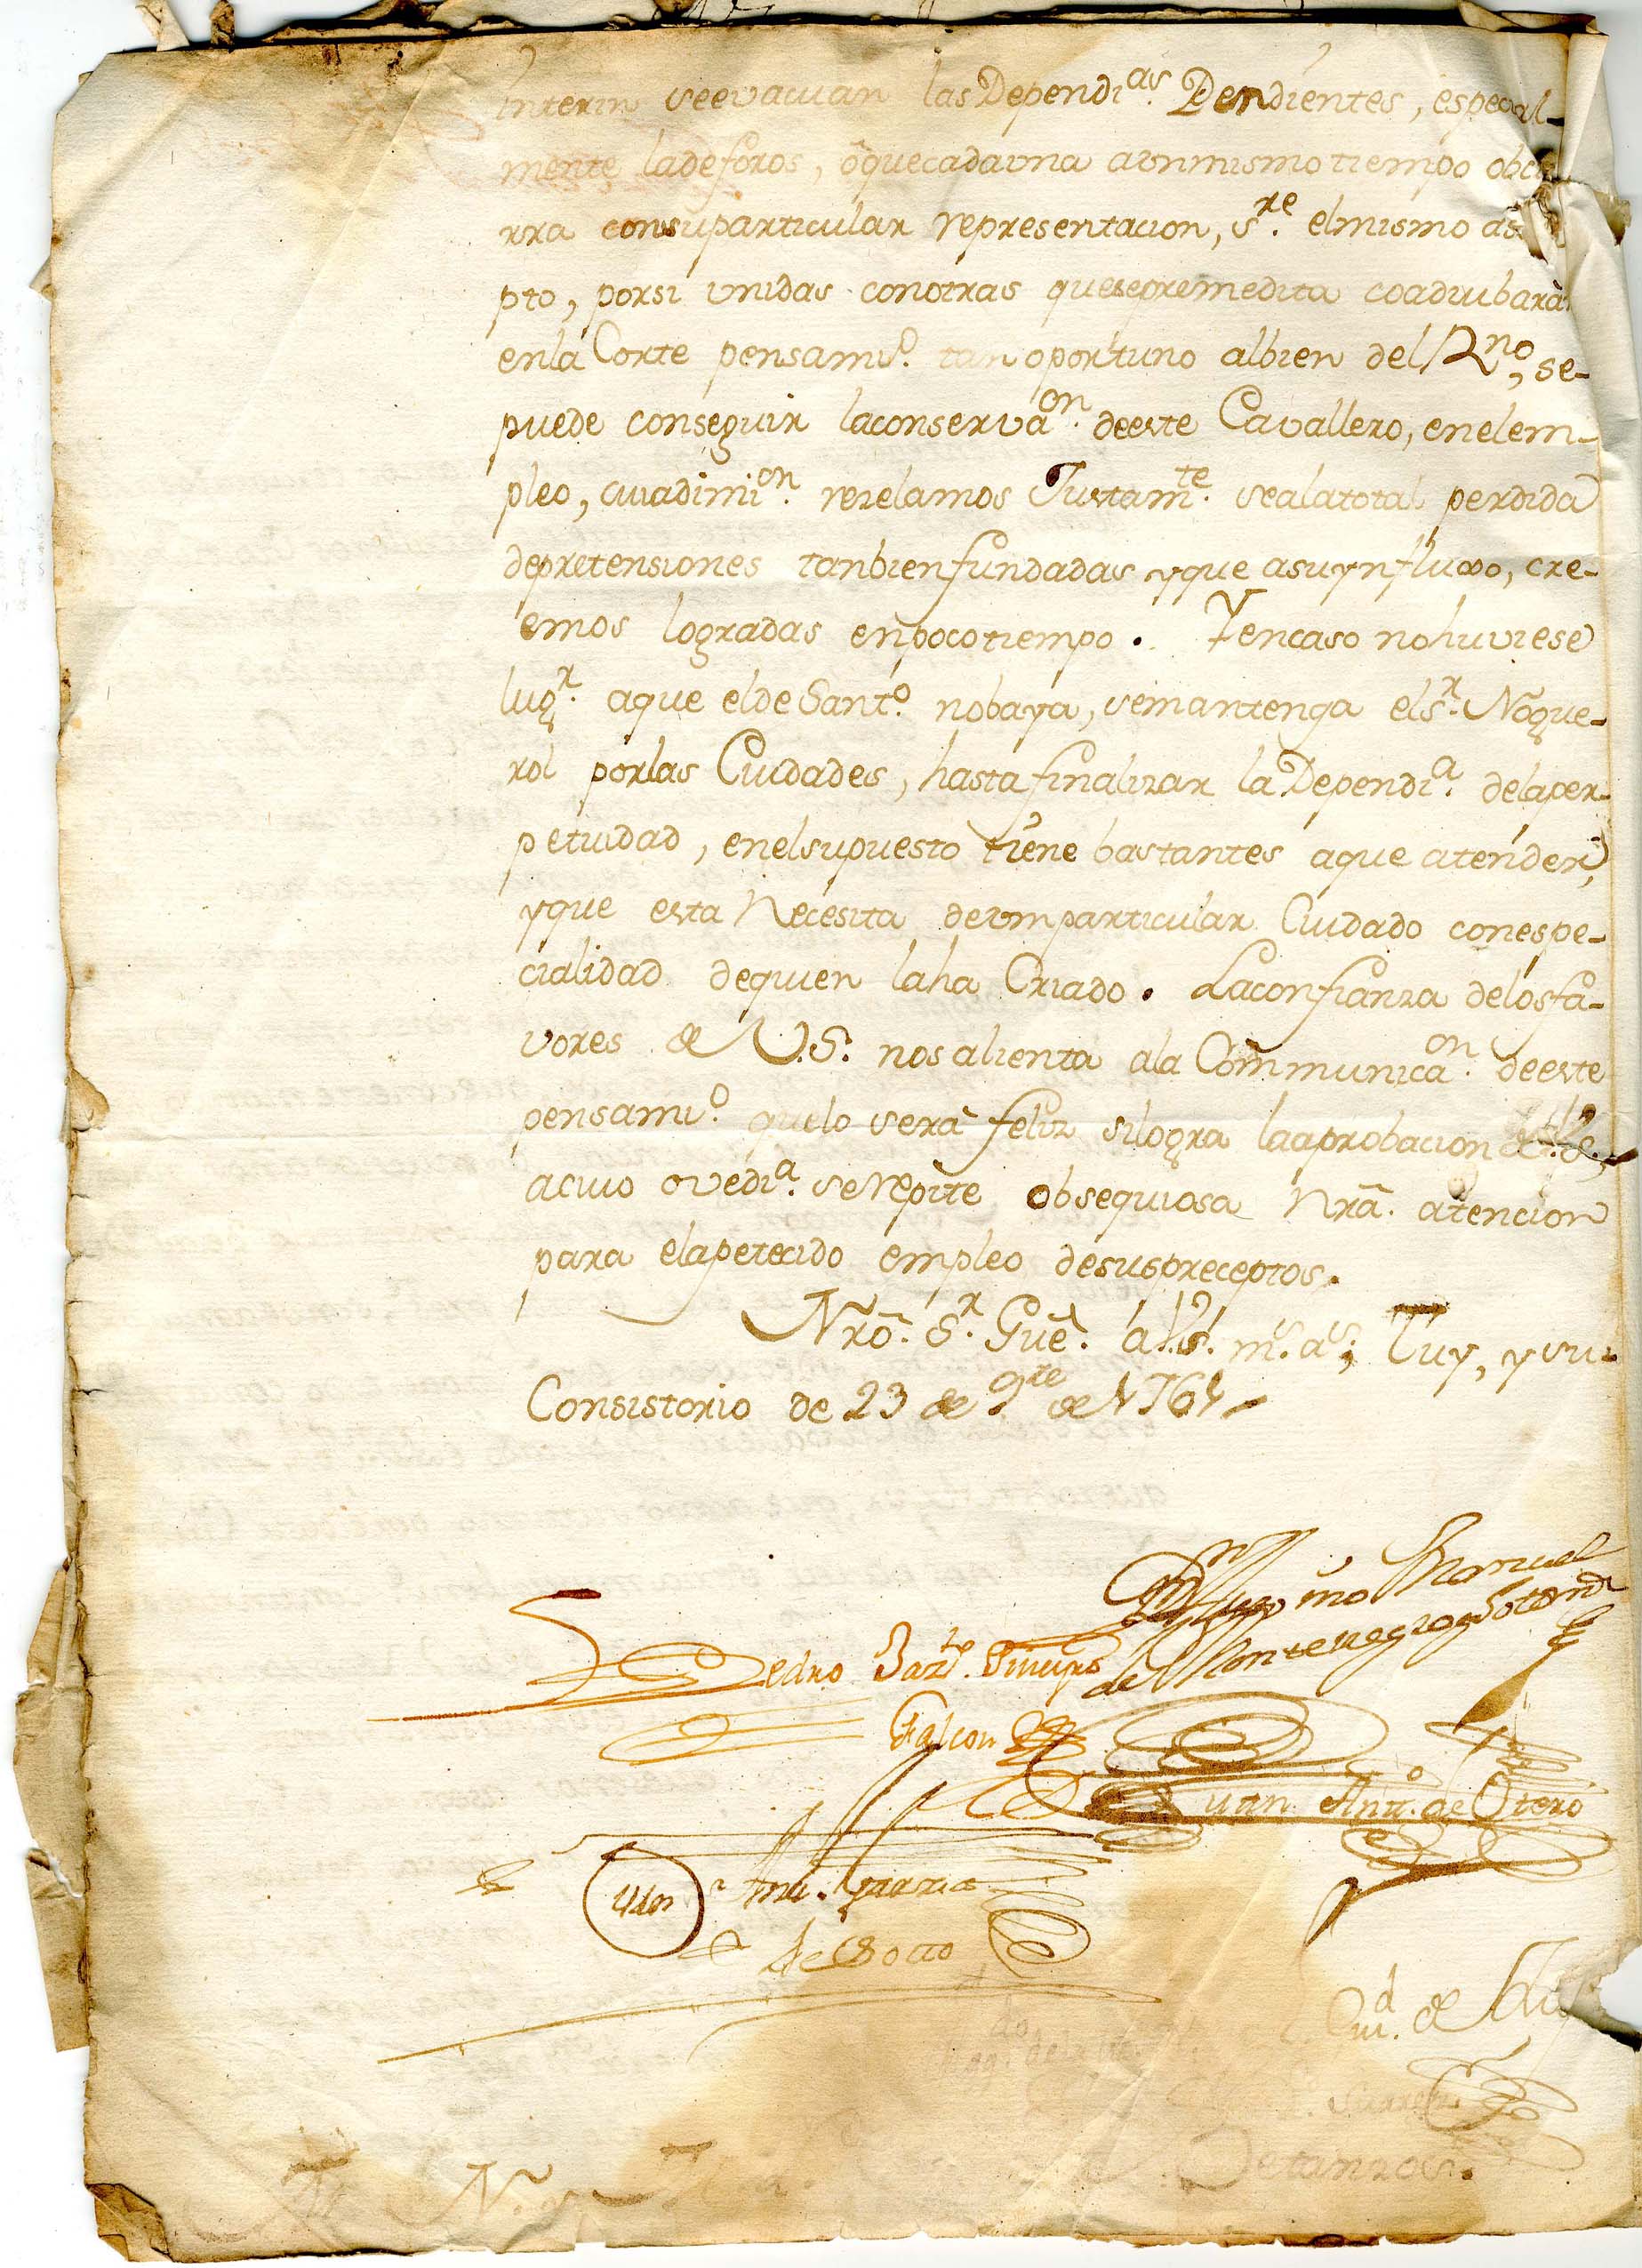 Interin seevacuan las Dependi.as Pendientes, especial-
mente ladeforos, ò quecadauna aunmismotiempo
rra consuparticular representacion, s.re elmismo as
pto, porsi unidas conotras quesepremedita coadiubaràn
enla Corte pensami.o tan oportuno albien del R.no, se-
puede conseguir laconserva.on deeste Cavallero, enelem-
pleo, cuiadimi.on rezelamos Justam.te sealatotal perdida
depretensiones tanbienfundadas yque asuynfluxo, cre-
emos logradas enpocotiempo. Yencaso nohuviese
lug.r aque elde Sant.o nobaya, semantenga els.r Nogue-
rol porlas Ciudades, hastafinalizar la Dependi.a delaper-
petuidad, enelsupuesto tiene bastantes aque atender,
yque esta Necesita deunparticular Cuidado conespe-
cialidad dequien laha Criado. Laconfianza delosfa-
vores de V.S. nos alienta ala Communica.on deeste
pensami.o quelo serà feliz silogra laaprobacion de V.S.,
acuio ovedi.a serepite obsequiosa Nrã. atencion
para elapetecido empleo desuspreceptos.
Nrõ. S.r Gũe. a V.S. m.s a.s; Tuy, y su
Consistorio de 23 de 9.re de 1761
Manuel
Pedro Bar.me
de Montenegro y Sotom.r
Falcon
Juan Ant.o de Otero
Ant. Garcia
de Socto
Ciu.d de
Betanzos.